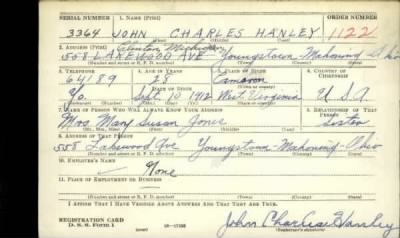 SERIAL NUMBER 1. NAME (Print) ORDER NUMBER
3364 JOHN CHARLES HANLEY 1122
(First) (Middle) (Last)
2. ADDRESS (Print) Clinton Michigan
558 LAKEWOOD AVE Youngstown-Mahoning Ohio
(Number and street or R. F. D. number) (Town) (County) (State)
3. TELEPHONE 4. AGE IN YEARS 5. PLACE OF BIRTH 6. COUNTRY OF CITIZENSHIP
64189 28 Cameron
DATE OF BIRTH
Yo. Sept 10 1912 West Virginia U.S.A
(Exchange) (Number) (Mo.) (Day) (Yr.) (State or country)
7. NAME OF PERSON WHO WILL ALWAYS KNOW YOUR ADDRESS 8. RELATIONSHIP OF THAT PERSON
Mrs. Mary Susan Jones Sister
(Mr., Mrs., Miss) (First) (Middle) (Last)
9. ADDRESS OF THAT PERSON
558 Lakewood Ave Youngstown-Mahoning-Ohio
(Number and street or R. F. D. number) (Town) (County) (State)
10. EMPLOYER'S NAME
None
11. PLACE OF EMPLOYMENT OR BUSINESS
(Number and street or R. F. D. number) (Town) (County) (State)
I AFFIRM THAT I HAVE VERIFIED ABOVE ANSWERS AND THAT THEY ARE TRUE.
REGISTRATION CARD
D. S. S. Form 1 (over) 16-17105 John Charles Hanley
(Registrant's signature)